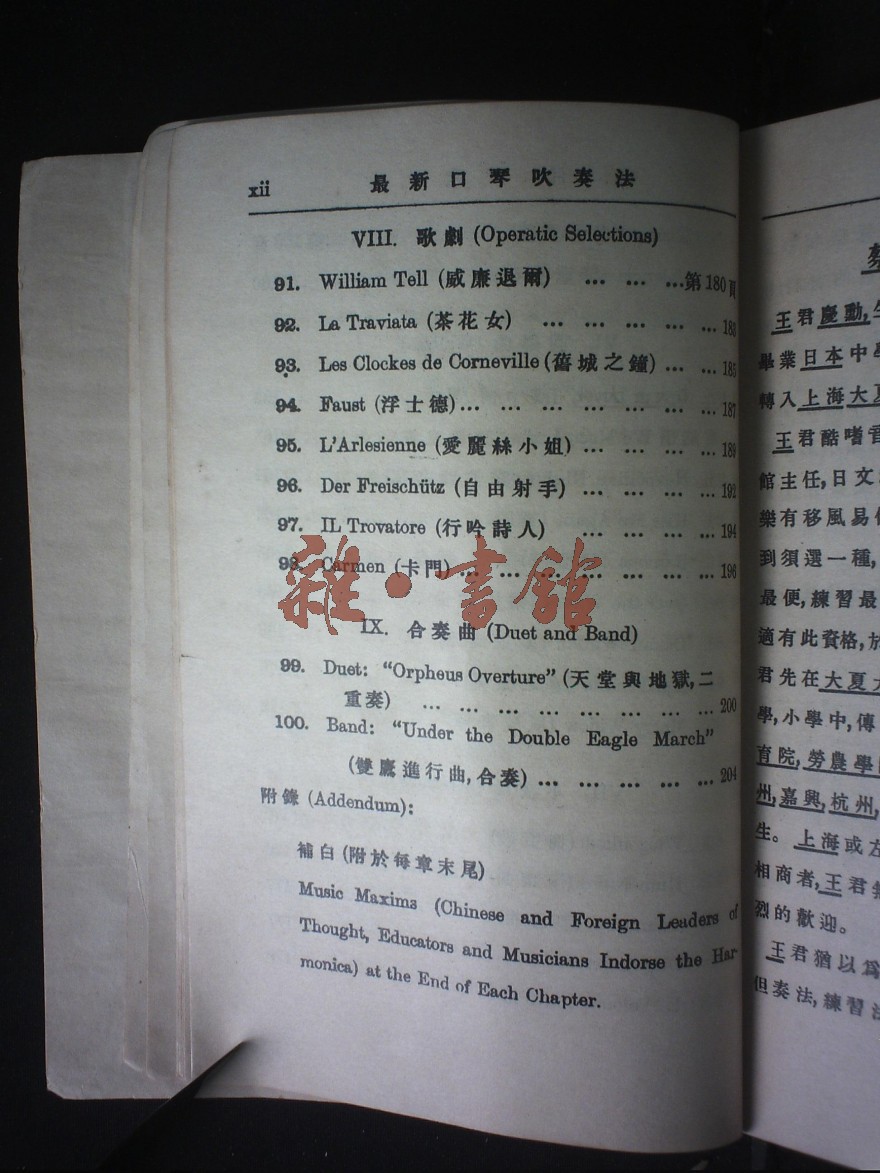 xii 最新口琴吹奏法
VIII. 歌劇 (Operatic Selections)
91. William Tell (威廉退爾) ... ... ...第180頁
92. La Traviata (茶花女) ... ... ... ... ... 183
93. Les Clockes de Corneville (舊城之鐘) ... ... ... 185
94. Faust (浮士德)... ... ... ... ... ... ... 187
95. L'Arlesienne (愛麗絲小姐) ... ... ... ... 189
96. Der Freischütz (自由射手) ... ... ... ... 192
97. IL Trovatore (行吟詩人) ... ... ... ... 194
98. Carmen (卡門)... ... ... ... ... ... ... 196
雜·書館
IX. 合奏曲 (Duet and Band)
99. Duet: “Orpheus Overture” (天堂與地獄,二
重奏) ... ... ... ... ... ... ... ... 200
100. Band: “Under the Double Eagle March”
(雙鷹進行曲,合奏) ... ... ... ... ... 204
附錄 (Addendum):
補白 (附於每章末尾)
Music Maxims (Chinese and Foreign Leaders of
Thought, Educators and Musicians Indorse the Har-
monica) at the End of Each Chapter.
王君慶勳,生
畢業日本中學
轉入上海大夏
王君酷嗜音
館主任,日文
樂有移風易俗
到須選一種,
最便,練習最
適有此資格,於
君先在大夏大
學,小學中,傳
育院,勞農學院
州,嘉興,杭州,
生。上海或左
相商者,王君無
烈的歡迎。
王君猶以爲
但奏法,練習法